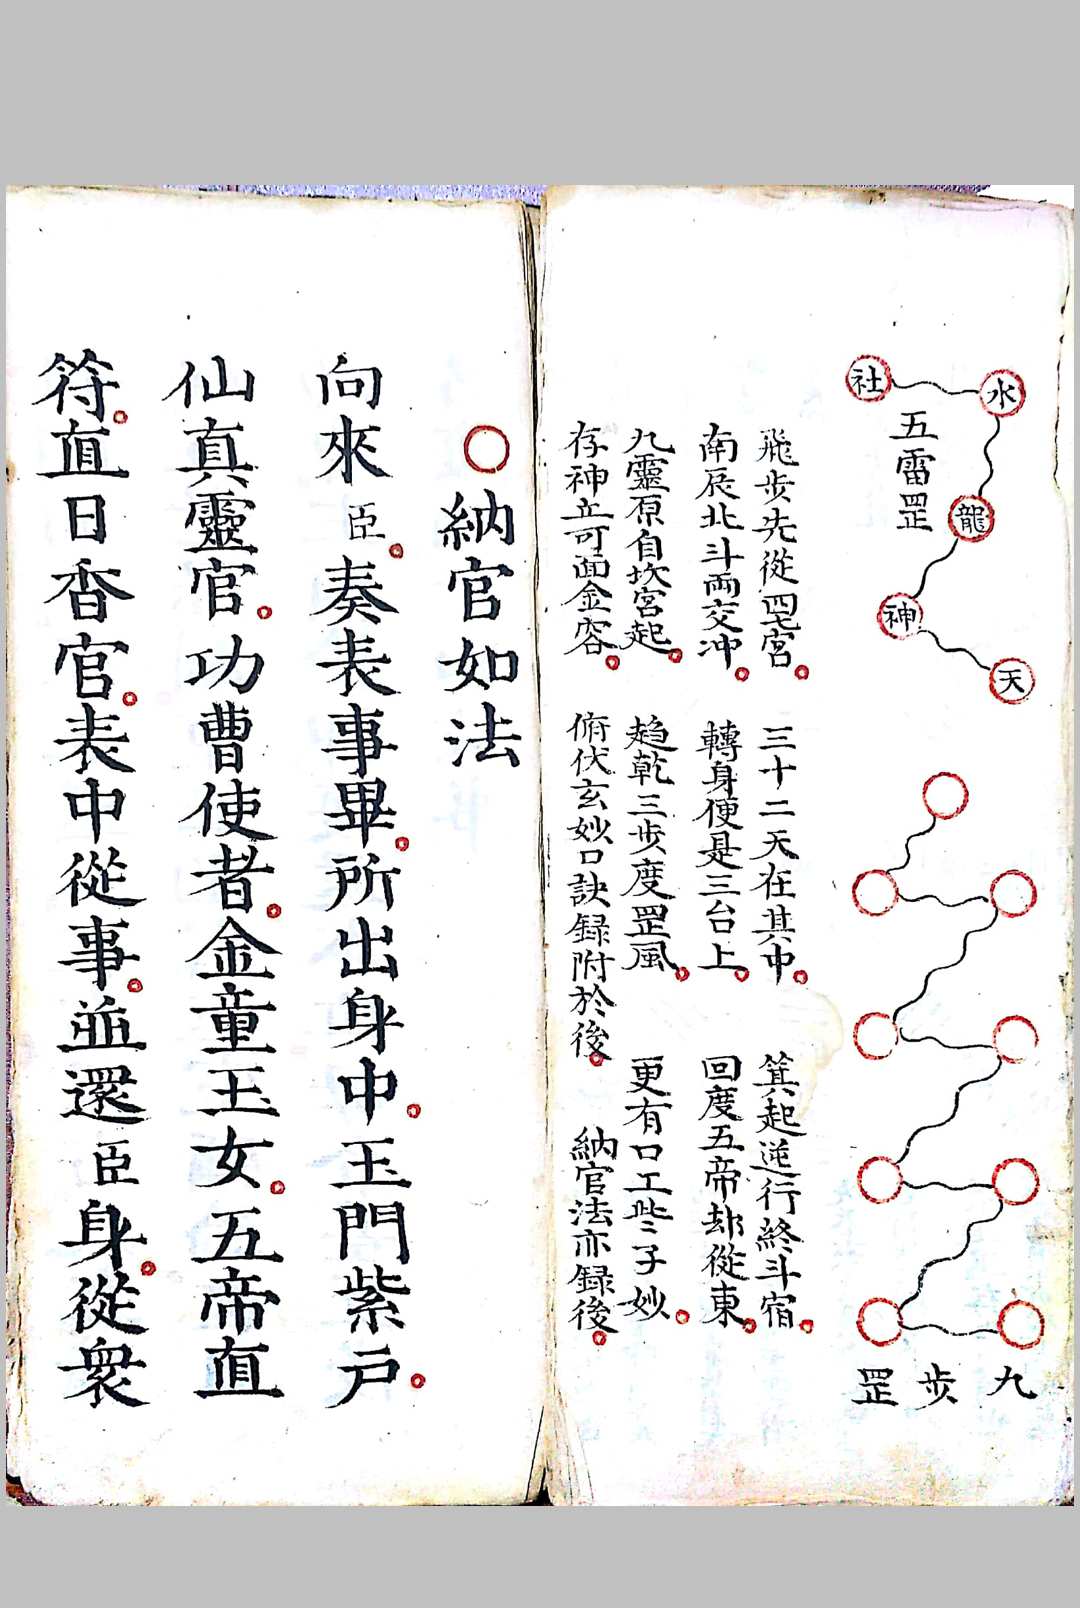 水
社
龍
神
天
五雷罡
九步罡
飛步先從四七宮 三十二天在其中 箕起逆行終斗宿
南辰北斗兩交冲 轉身便是三台上 回度五帝却從東
九靈原自坎宮起 趋乾三步度罡風 更有口工些子妙
存神立可面金容 俯伏玄妙口訣録附於後 納官法亦録後
納官如法
向來臣奏表事畢所出身中玉門紫戶
仙真靈官功曹使者金童玉女五帝直
符直日香官表中從事並還臣身從衆